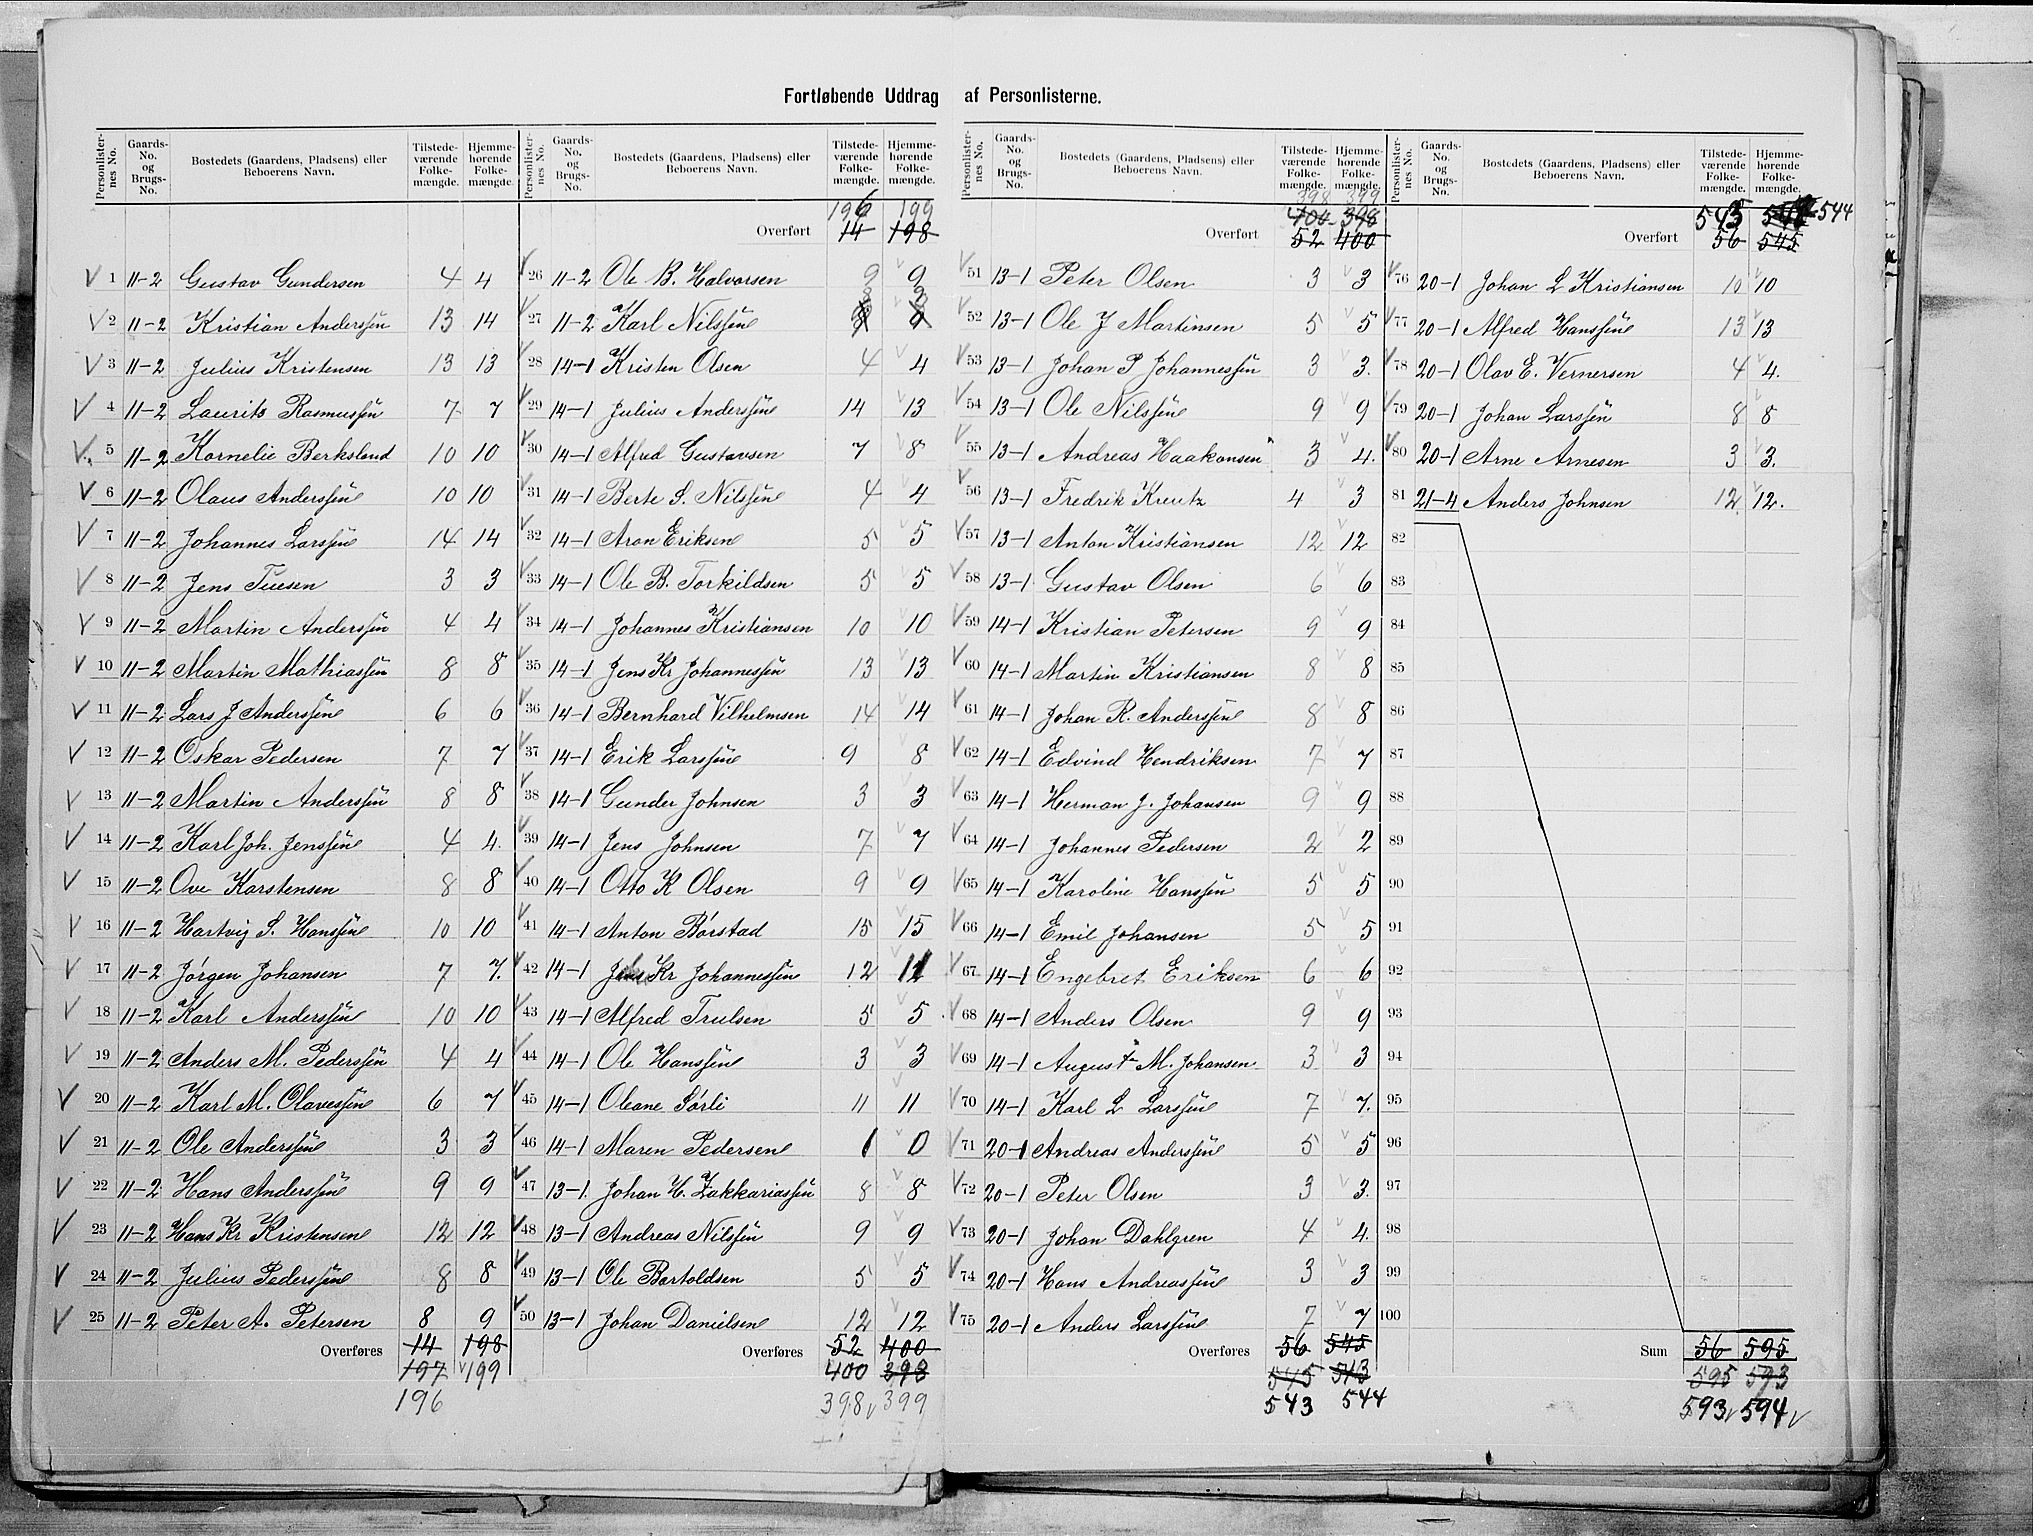 Fortløbende Uddrag af Personlisterne.
Personlister-nes No. Gaards-No. og Brugs-No. Bostedets (Gaardens, Pladsens) eller Beboerens Navn. Tilstede-værende Folke-mængde. Hjemme-hørende Folke-mængde.
1 11-2 Gustav Gundersen 4 4
2 11-2 Kristian Anderssen 13 14
3 11-2 Julius Kristensen 13 13
4 11-2 Laurits Rasmussen 7 7
5 11-2 Kornelie Berksland 10 10
6 11-2 Olaus Anderssen 10 10
7 11-2 Johannes Larssen 14 14
8 11-2 Jens Tuesen 3 3
9 11-2 Martin Anderssen 4 4
10 11-2 Martin Mathiassen 8 8
11 11-2 Lars J Anderssen 6 6
12 11-2 Oskar Pedersen 7 7
13 11-2 Martin Anderssen 8 8
14 11-2 Karl Joh. Jenssen 4 4.
15 11-2 Ove Karstensen 8 8
16 11-2 Hartvig S. Hanssen 10 10
17 11-2 Jørgen Johansen 7 7.
18 11-2 Karl Anderssen 10 10
19 11-2 Anders M. Pederssen 4 4
20 11-2 Karl M. Olavessen 6 7
21 11-2 Ole Anderssen 3 3
22 11-2 Hans Anderssen 9 9
23 11-2 Hans Kr Kristensen 12 12
24 11-2 Julius Pederssen 8 8
25 11-2 Peter A. Petersen 8 9
Overføres 14 198
197 199
196
Personlister-nes No. Gaards-No. og Brugs-No. Bostedets (Gaardens, Pladsens) eller Beboerens Navn. Tilstede-værende Folke-mængde. Hjemme-hørende Folke-mængde.
196 199
Overført 14 198
26 11-2 Ole B. Halvorsen 9 9
3 3
27 11-2 Karl Nilssen
28 14-1 Kristen Olsen 4 4
29 14-1 Julius Anderssen 14 13
30 14-1 Alfred Gustavsen 7 8
31 14-1 Berte S. Nilssen 4 4
32 14-1 Aron Eriksen 5 5
33 14-1 Ole B. Torkildsen 5 5
34 14-1 Johannes Kristiansen 10 10
35 14-1 Jens Kr Johannessen 13 13
36 14-1 Bernhard Vilhelmsen 14 14
37 14-1 Erik Larssen 9 8
38 14-1 Gunder Johnsen 3 3
39 14-1 Jens Johnsen 7 7
40 14-1 Otto K Olsen 9 9
41 14-1 Anton Børstad 15 15
42 14-1 Jens Kr Johannessen 12
43 14-1 Alfred Trulsen 5 5
44 14-1 Ole Hanssen 3 3
45 14-1 Oleane Sørli 11 11
46 14-1 Maren Pedersen 1 0
47 13-1 Johan H. Zakkariassen 8 8
48 13-1 Andreas Nilssen 9 9
49 13-1 Ole Bartoldsen 5 5
50 13-1 Johan Danielsen 12 12
Overføres 52 400
400 398
398 399
Personlister-nes No. Gaards-No. og Brugs-No. Bostedets (Gaardens, Pladsens) eller Beboerens Navn. Tilstede-værende Folke-mængde. Hjemme-hørende Folke-mængde.
398 399
400 398
Overført 52 400
51 13-1 Peter Olsen 3 3
52 13-1 Ole J Martinsen 5 5
53 13-1 Johan P Johannessen 3 3.
54 13-1 Ole Nilssen 9 9
55 13-1 Andreas Haakonsen 3 4.
56 13-1 Fredrik Kreutz 4 3
57 13-1 Anton Kristiansen 12 12
58 13-1 Gustav Olsen 6 6
59 14-1 Kristian Petersen 9 9
60 14-1 Martin Kristiansen 8 8
61 14-1 Johan R. Anderssen 8 8
62 14-1 Edvind Hendriksen 7 7
63 14-1 Herman J. Johansen 9 9
64 14-1 Johannes Pedersen 2 2
65 14-1 Karoline Hanssen 5 5
66 14-1 Emil Johansen 5 5
67 14-1 Engebret Eriksen 6 6
68 14-1 Anders Olsen 9 9
69 14-1 August M. Johansen 3 3
70 14-1 Karl L Larssen 7 7.
71 20-1 Andreas Anderssen 5 5
72 20-1 Peter Olsen 3 3.
73 20-1 Johan Dahlgren 4 4.
74 20-1 Hans Andreassen 3 3
75 20-1 Anders Larssen 7 7
Overføres 56 545
545 543
543 544
Personlister-nes No. Gaards-No. og Brugs-No. Bostedets (Gaardens, Pladsens) eller Beboerens Navn. Tilstede-værende Folke-mængde. Hjemme-hørende Folke-mængde.
543 544
Overført 56 545
76 20-1 Johan L Kristiansen 10 10
77 20-1 Alfred Hanssen 13 13
78 20-1 Olav E. Vernersen 4 4.
79 20-1 Johan Larssen 8 8
80 20-1 Arne Arnesen 3 3.
81 21-4 Anders Johnsen 12 12.
82
83
84
85
86
87
88
89
90
91
92
93
94
95
96
97
98
99
100
Sum 56 595
595 593
593 594